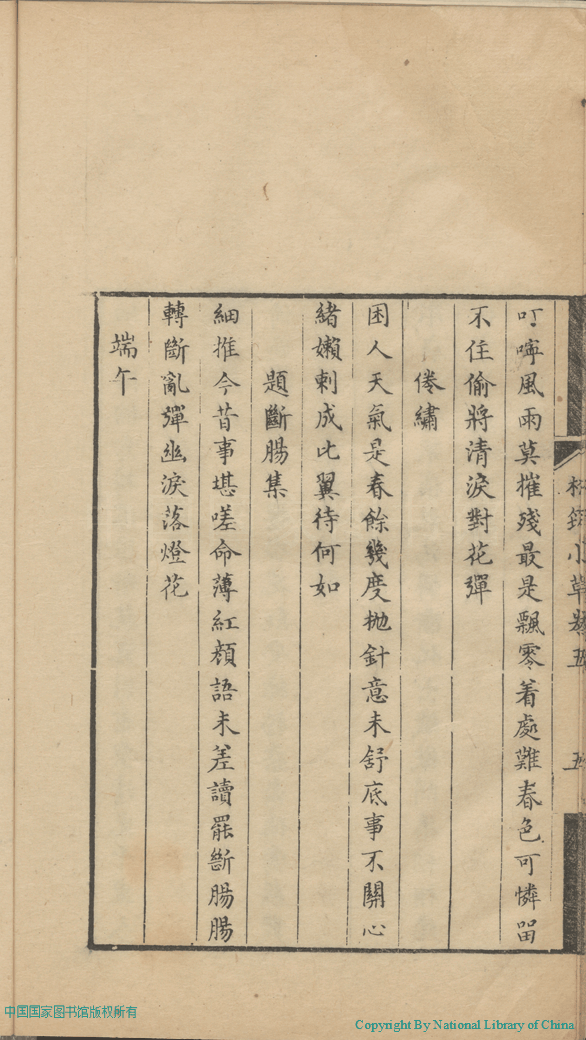 叮嚀風雨莫摧殘最是飄零着處難春色可憐留
不住偷將清淚對花彈
倦繡
困人天氣是春餘幾度抛針意未舒底事不關心
緒嬾刺成比翼待何如
題斷腸集
細推今昔事堪嗟命薄紅顔語未差讀罷斷腸腸
轉斷亂彈幽淚落燈花
端午
小草
五
五
中国国家图书馆版权所有
Copyright By National Library of China